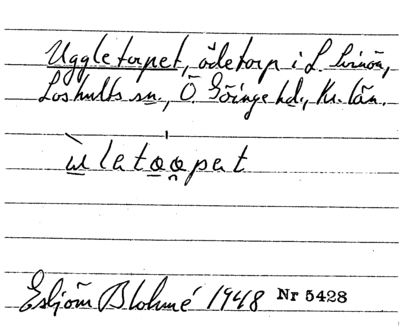 Uggletorpet, ödetorp i L.
Loshults sn., Ö. Göinge hd., Kr. län.
ẁletọọpet
Esbjörn Blohmé 1948 Nr 5428